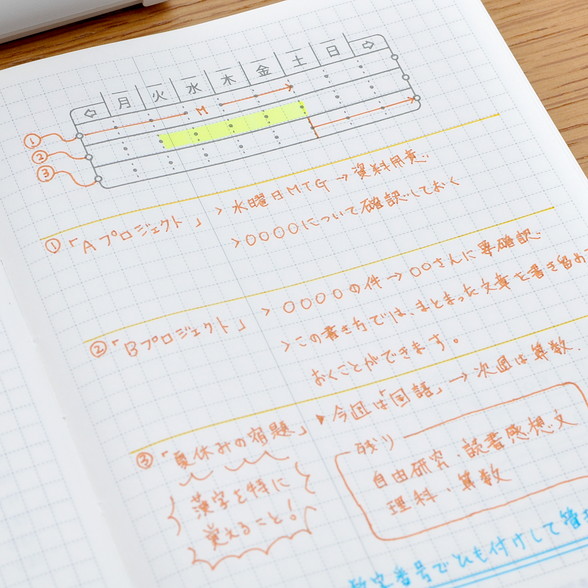 月 火 水 木 金 土 日
M
①
②
③
①「Aプロジェクト」 > 水曜日MTG→資料用意。
>○○○○について確認しておく
②「Bプロジェクト」 > ○○○○の件→○○さんに要確認。
>この書き方では、まとまった文章を書き留め
おくことができます。
③「夏休みの宿題」▶今週は「国語」→次週は算数。
漢字を特に
覚えること!
残り
自由研究・読書感想文
理科・算数
番号でひも付けして管